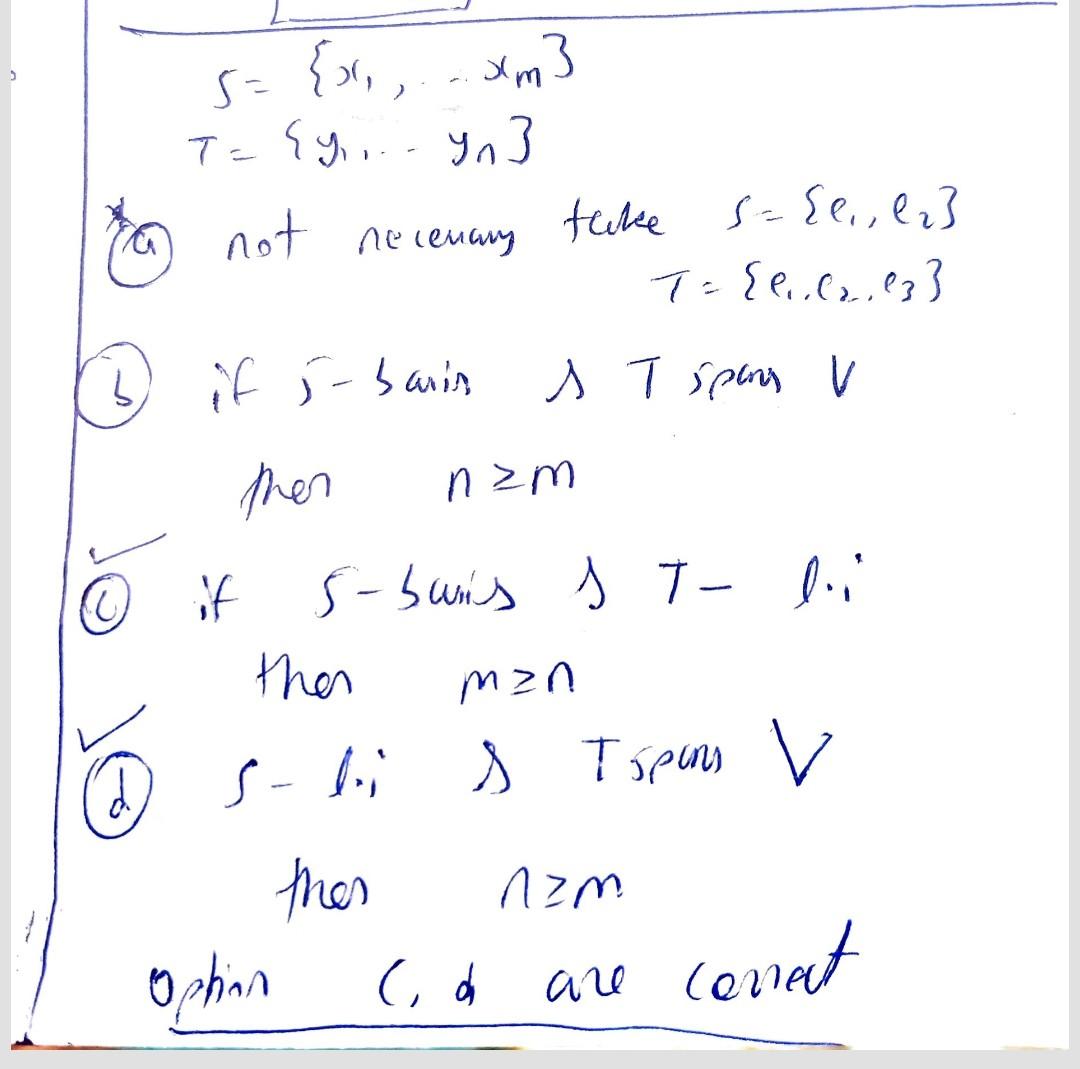 S= {x₁, ... xₘ}
T= {y₁, ... yₙ}
ⓐ not necessary take S= {e₁, e₂}
T= {e₁, e₂, e₃}
ⓑ if S-basis & T spans V
then n≥m
ⓒ if S-basis & T- l.i
then m≥n
ⓓ S- l.i & T spans V
then n≥m
Option C, d are correct